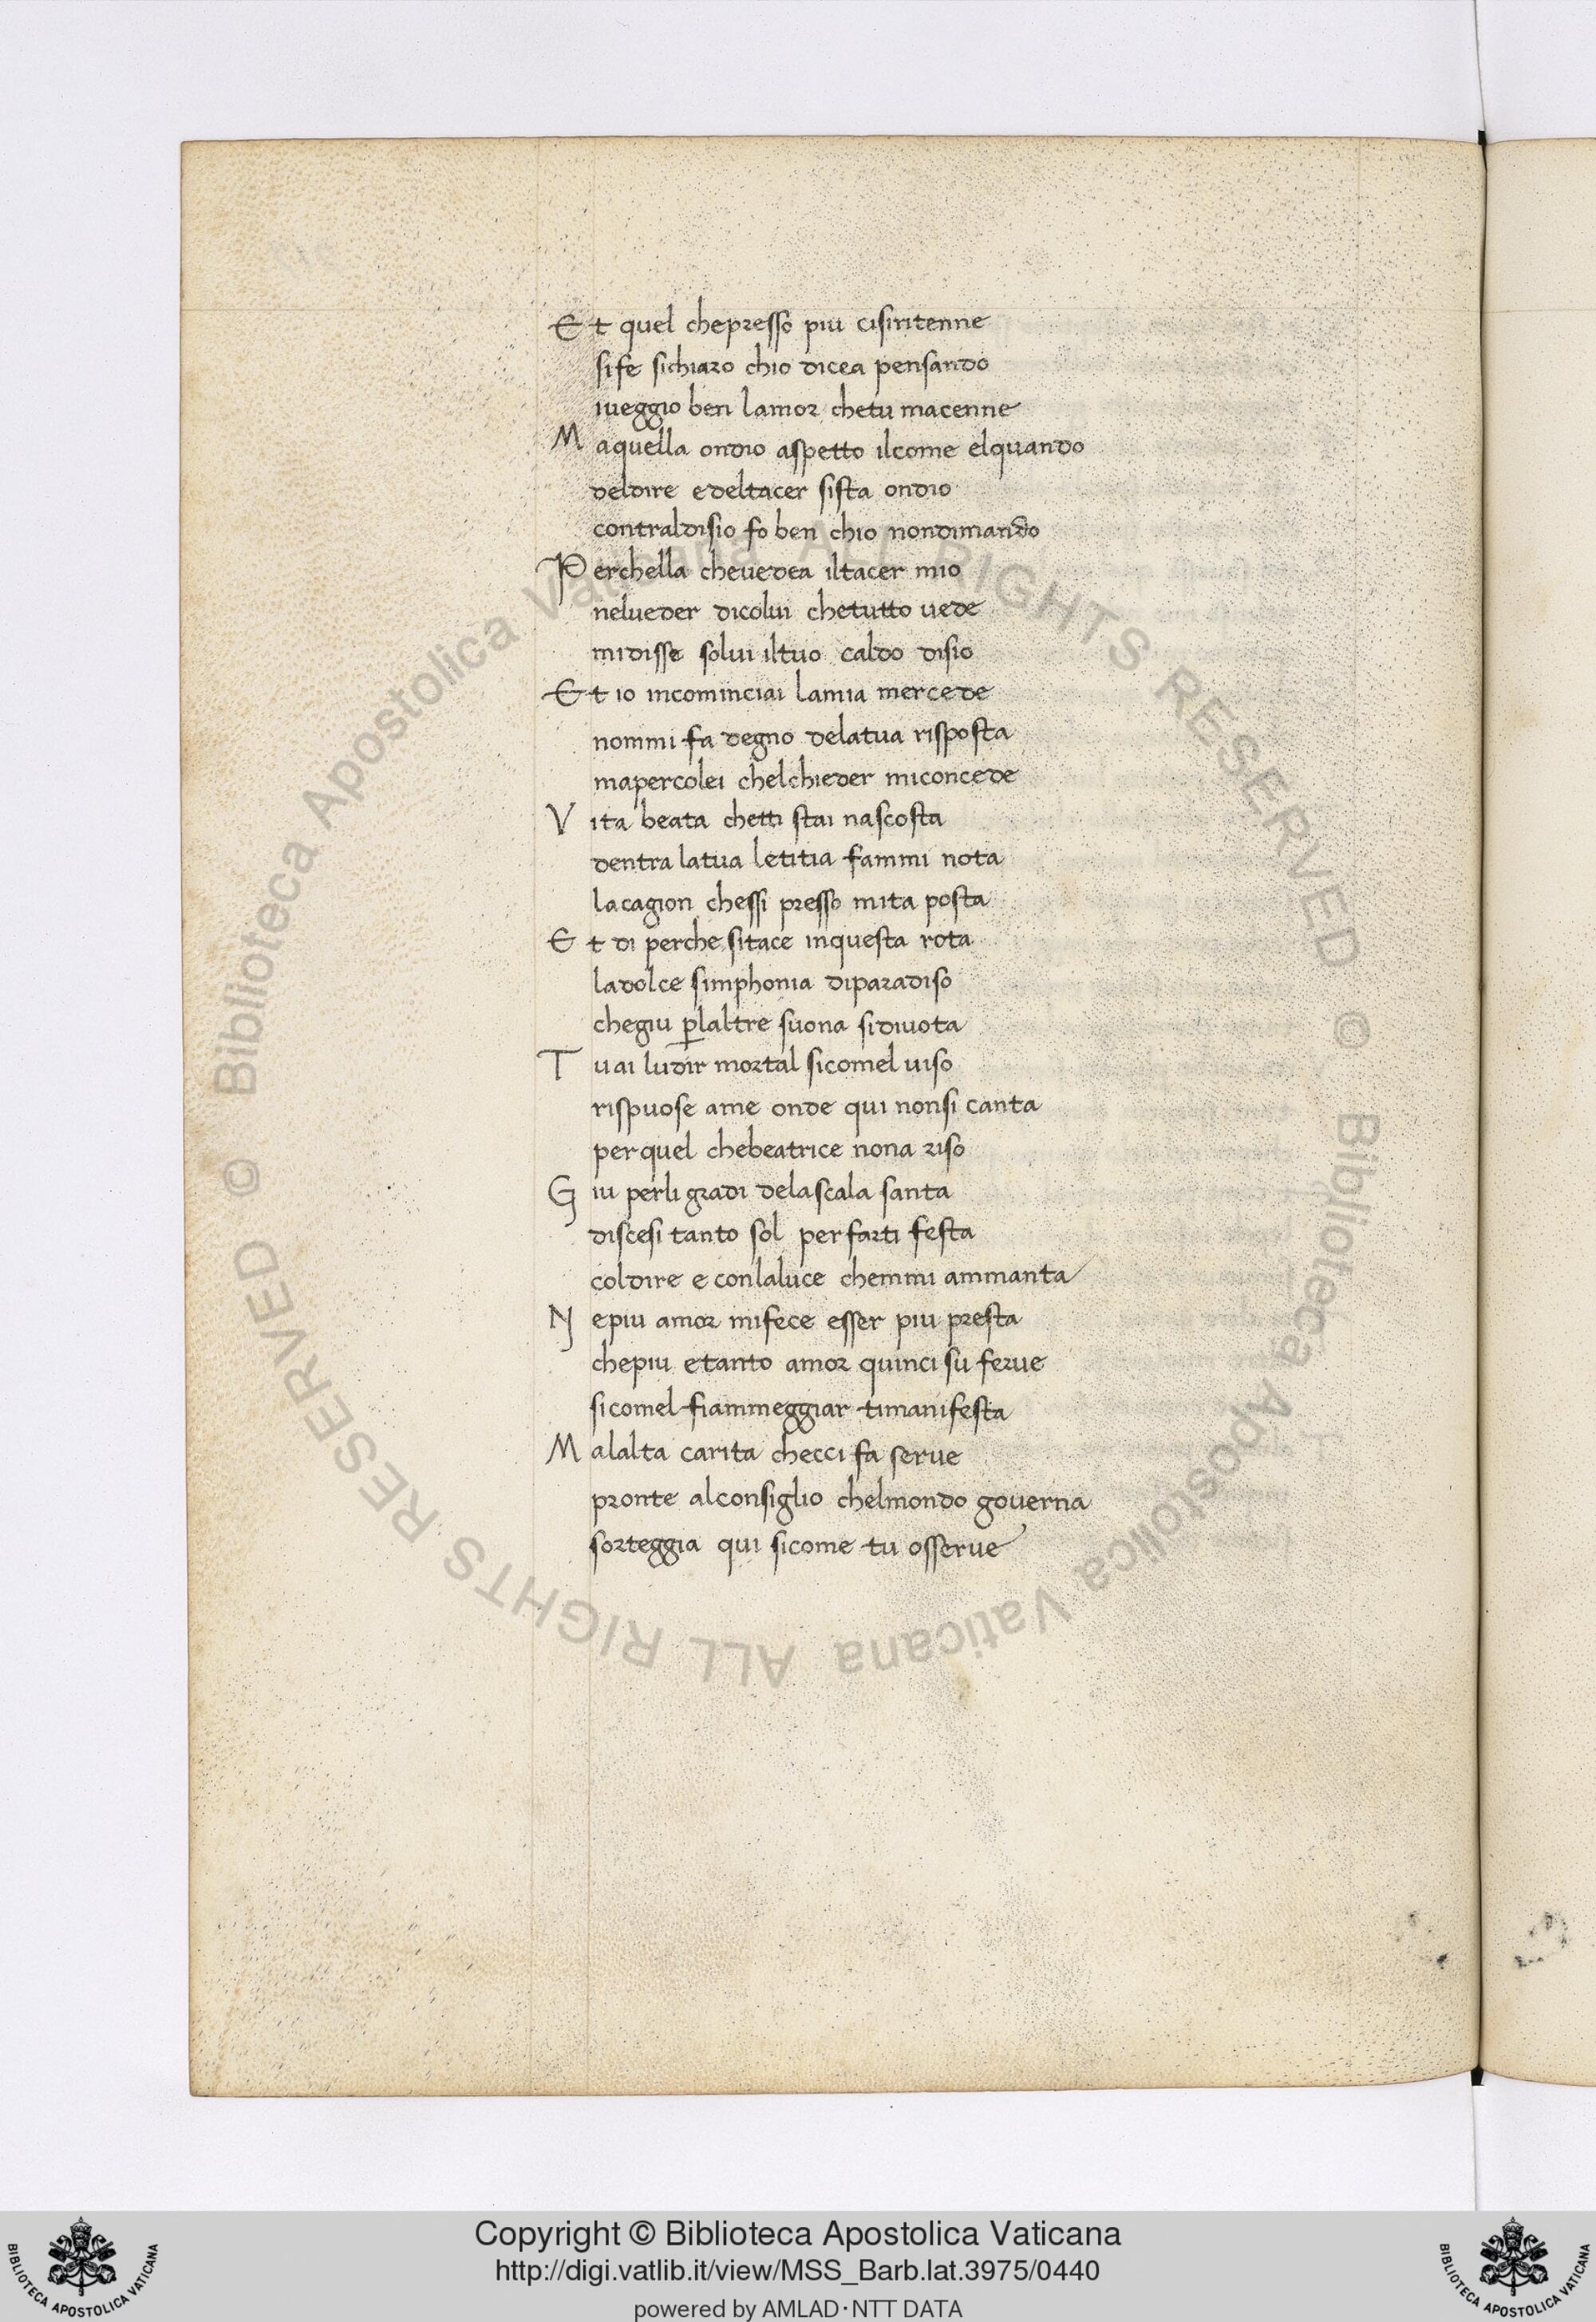 Et quel chepresso piu cisiritenne
sife sichiaro chio dicea pensando
iueggio ben lamor chetu macenne
Maquella ondio aspetto ilcome elquando
deldire edeltacer sista ondio
contraldisio fo ben chio nondimando
Perchella cheuedea iltacer mio
nelueder dicolui chetutto uede
midisse solui iltuo caldo disio
Et io incominciai lamia mercede
nommi fa degno delatua risposta
mapercolei chelchieder miconcede
Vita beata chetti stai nascosta
dentra latua letitia fammi nota
lacagion chessi presso mita posta
Et di perche sitace inquesta rota
ladolce simphonia diparadiso
chegiu ꝑlaltre suona sidiuota
Tuai ludir mortal sicomel uiso
rispuose ame onde qui nonsi canta
perquel chebeatrice nona riso
Giu perli gradi delascala santa
discesi tanto sol perfarti festa
coldire e conlaluce chemmi ammanta
Nepiu amor mifece esser piu presta
chepiu etanto amor quinci su ferue
sicomel fiammeggiar timanifesta
Malalta carita checci fa serue
pronte alconsiglio chelmondo gouerna
sorteggia qui sicome tu osserue
© Biblioteca Apostolica Vaticana ALL RIGHTS RESERVED © Biblioteca Apostolica Vaticana ALL RIGHTS RESERVED
Copyright © Biblioteca Apostolica Vaticana
http://digi.vatlib.it/view/MSS_Barb.lat.3975/0440
powered by AMLAD·NTT DATA
BIBLIOTECA APOSTOLICA VATICANA
BIBLIOTECA APOSTOLICA VATICANA